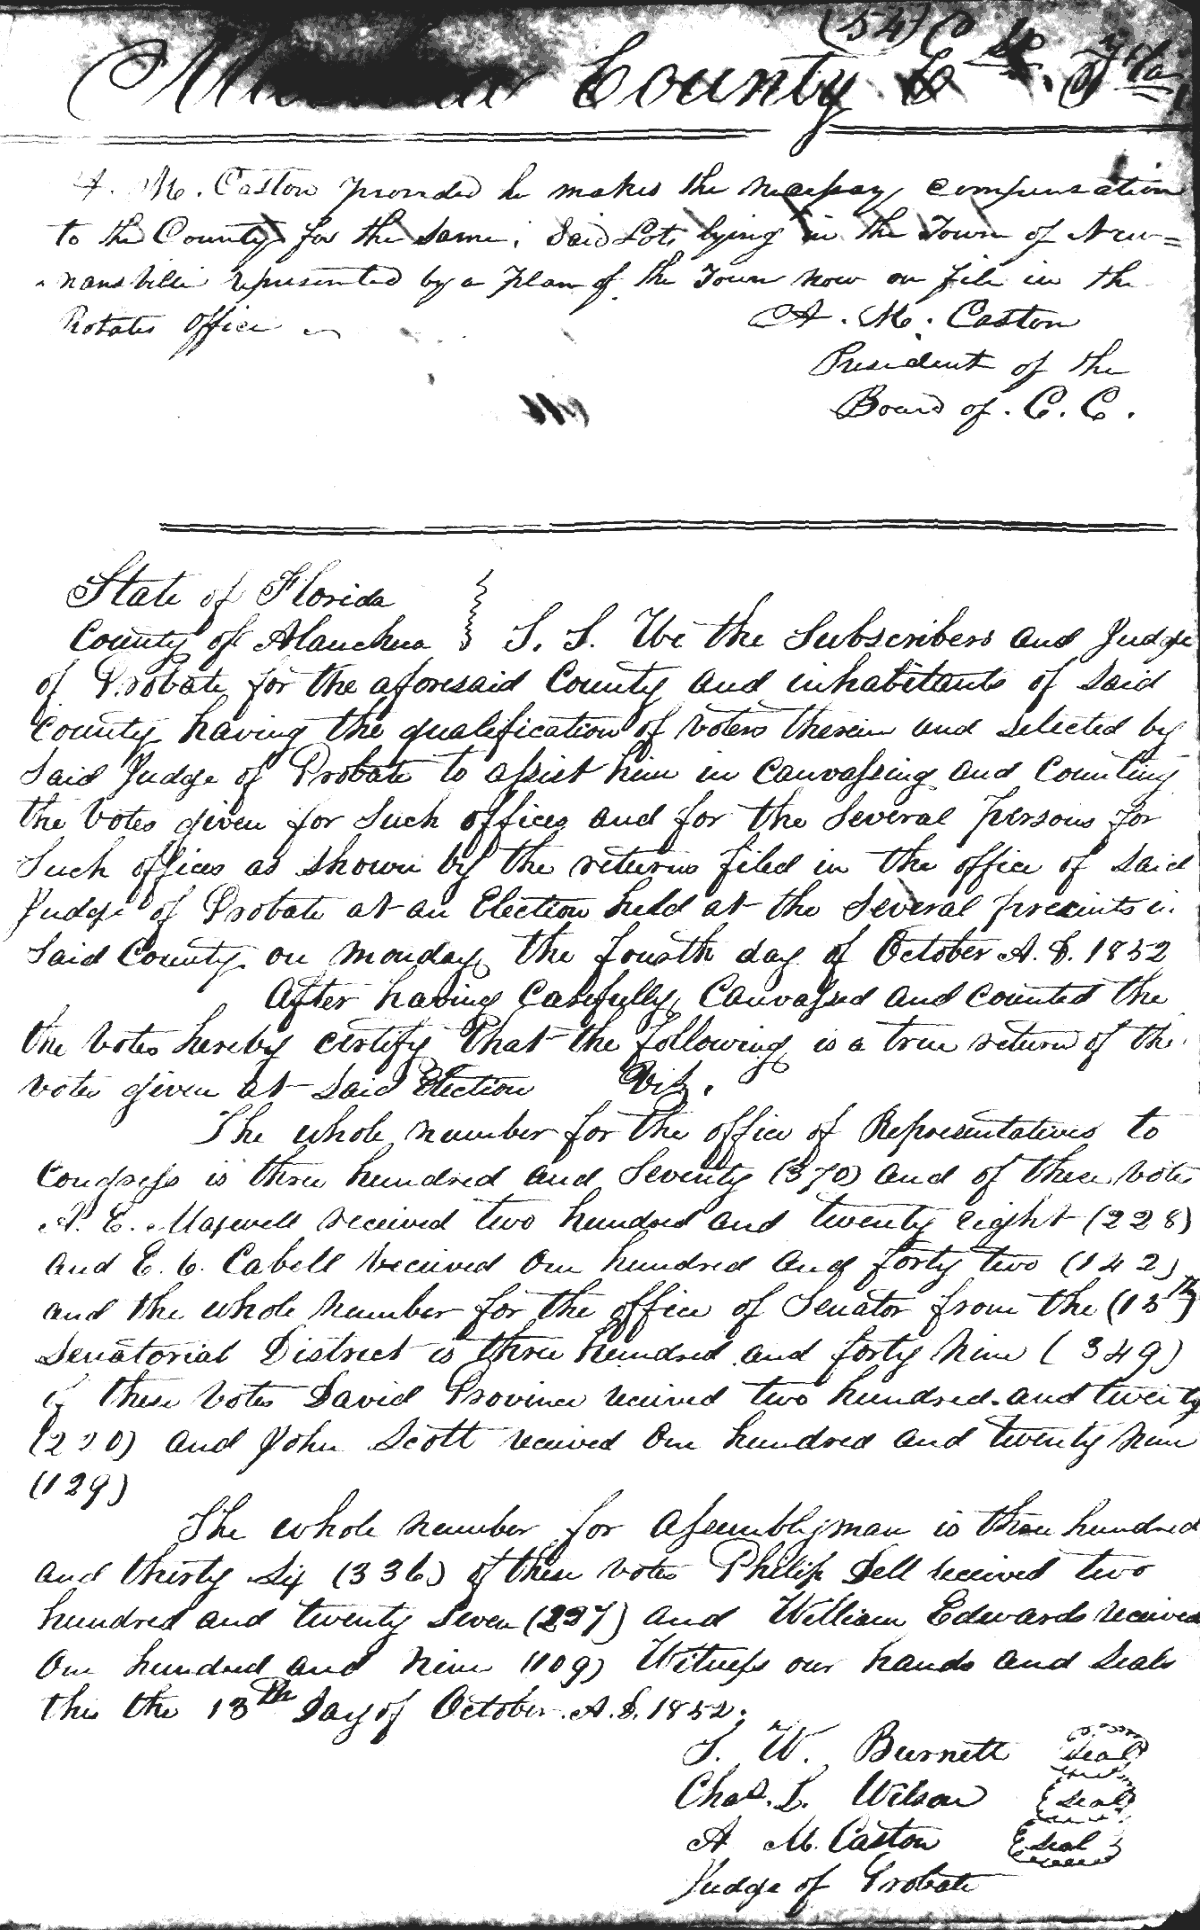 (54)
County
A. M. Caston provided he makes the necessary compensation
to the County for the same. Said Lots lying in the Town of New=
nansville represented by a plan of the Town now on file in the
Probates office
A. M. Caston
President of the
Board of. C. C.
State of Florida
County of Alauchua S. S. We the Subscribers and Judge
of Probate for the aforesaid County and inhabitants of said
County having the qualification of voters therein and selected by
said Judge of Probate to assist him in canvassing and counting
the votes given for such offices and for the several persons for
such offices as shown by the returns filed in the office of said
Judge of Probate at an Election held at the several precints in
said County on monday the fourth day of October A. D. 1852
After having carefully canvassed and counted the
the votes hereby certify that the following is a true return of the
votes given at said Election Viz.
The whole number for the office of Representatives to
Congress is three hundred and seventy (370) and of these votes
A. E. Maxwell received two hundred and twenty eight (228)
and E. C. Cabell received one hundred and forty two (142)
and the whole number for the office of Senator from the (15th)
Senatorial District is three hundred and forty nine (349)
of these votes David Province received two hundred and twenty
(220) and John Scott received one hundred and twenty nine
(129)
The whole number for Assemblyman is three hundred
and thirty six (336) of these votes Philip Dell received two
hundred and twenty seven (227) and William Edwards received
One hundred and nine (109) Witness our hands and seals
this the 13th Day of October. A. D. 1852.
S. W. Burnett Seal
Chas. L. Wilson Seal
A M. Caston Seal
Judge of Probate